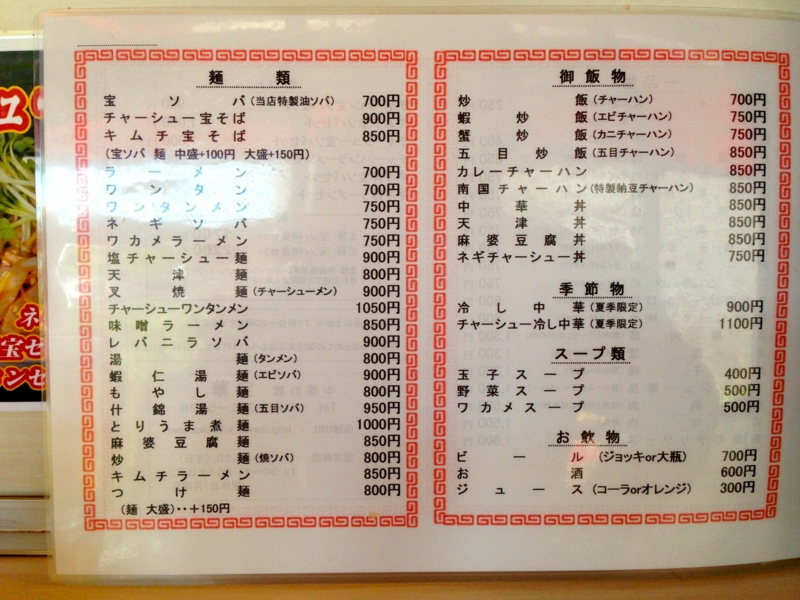 麺類
宝ソバ(当店特製油ソバ) 700円
チャーシュー宝そば 900円
キムチ宝そば 850円
(宝ソバ 麺 中盛+100円 大盛+150円)
ラーメン 700円
ワンタン 700円
ワンタンメン 750円
ネギソバ 750円
ワカメラーメン 750円
塩チャーシュー麺 900円
天津麺 800円
叉焼麺(チャーシューメン) 900円
チャーシューワンタンメン 1050円
味噌ラーメン 850円
レバニラソバ 900円
湯麺(タンメン) 800円
蝦仁湯麺(エビソバ) 900円
もやし麺 800円
什錦湯麺(五目ソバ) 950円
とりうま煮麺 1000円
麻婆豆腐麺 850円
炒麺(焼ソバ) 800円
キムチラーメン 850円
つけ麺 800円
(麺 大盛)‥+150円
御飯物
炒飯(チャーハン) 700円
蝦炒飯(エビチャーハン) 750円
蟹炒飯(カニチャーハン) 750円
五目炒飯(五目チャーハン) 850円
カレーチャーハン 850円
南国チャーハン(特製納豆チャーハン) 850円
中華丼 850円
天津丼 850円
麻婆豆腐丼 850円
ネギチャーシュー丼 750円
季節物
冷し中華(夏季限定) 900円
チャーシュー冷し中華(夏季限定) 1100円
スープ類
玉子スープ 400円
野菜スープ 500円
ワカメスープ 500円
お飲物
ビール(ジョッキor大瓶) 700円
お酒 600円
ジュース(コーラorオレンジ) 300円